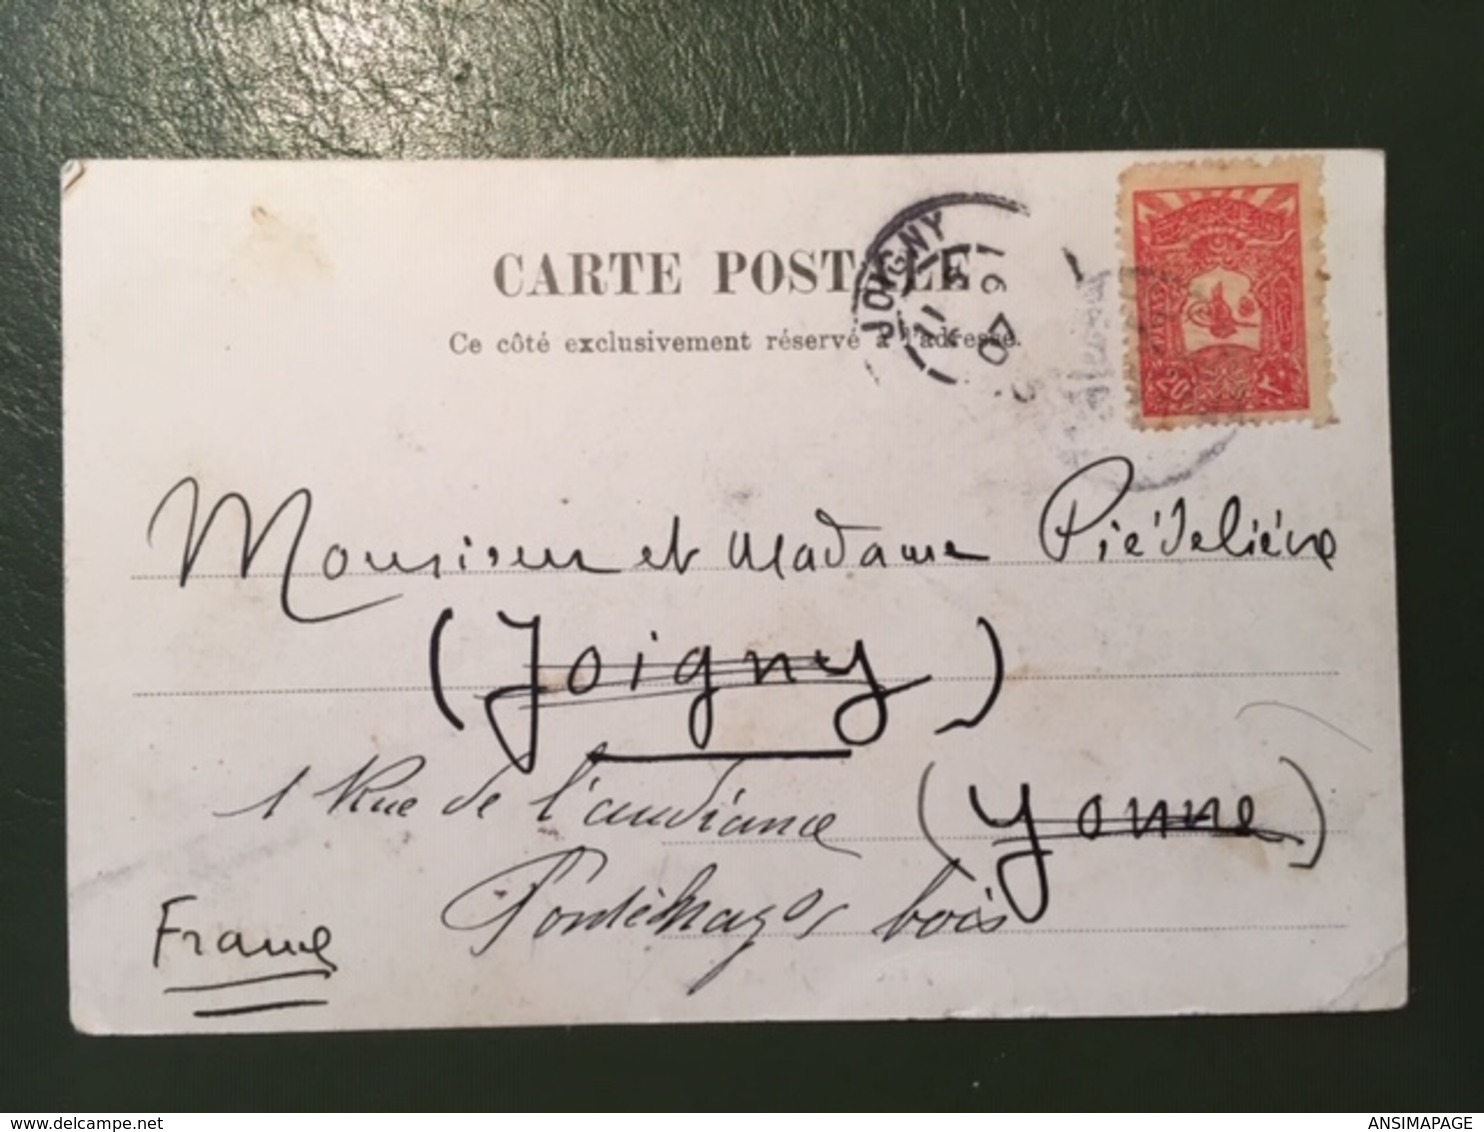 CARTE POSTALE
Ce côté exclusivement réservé à l'adresse.
JOIGNY
20
Monsieur et Madame Piédelièvre
(Joigny)
1 Rue de l'audiance
(Yonne)
bois
France
delcampe.net
ANSIMAPAGE